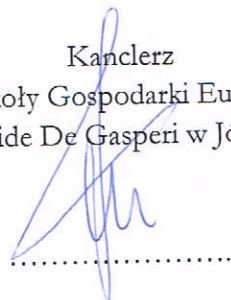 Kanclerz
oły Gospodarki Eu
ide De Gasperi w Jó